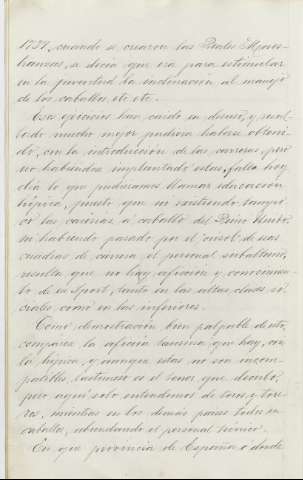 1757, cuando se crearon las Reales Maes-
tranzas, se decía que era para estimular
en la juventud la inclinación al manejo
de los caballos, etc. etc.
Esos ejercicios han caído en desuso, y resul-
tado mucho mejor pudiera haberse obteni-
do, con la introducción de las carreras, pero
no habiéndose implantado estas, falta hoy
día lo que pudiéramos llamar educación
hípica, puesto que no existiendo tampo-
co las cacerías á caballo del Reino Unido,
ni habiendo pasado por el crisol de sus
cuadras de carrera el personal subalterno,
resulta que no hay afición y conocimien-
to de su Sport, tanto en las altas clases so-
ciales como en las inferiores.
Como demostración bien palpable de esto,
compárese la afición taurina que hay, con
la hípica, y aunque estas no son incom-
patibles, lastimoso es el tener que decirlo,
pero aquí solo entendemos de toros y tore-
ros, mientras en los demás países todos en
caballos, abundando el personal técnico.
En que provincia de España ó donde